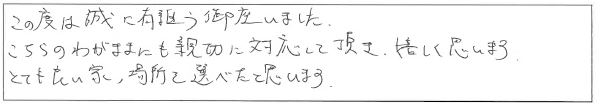 この度は誠に有難う御座いました.
こちらのわがままにも親切に対応して頂き、嬉しく思います.
とても良い家、場所を選べたと思います.